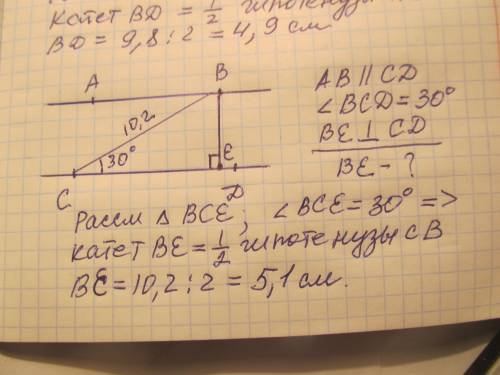 катет BD = 1/2 гипотенузы
BD = 9,8 : 2 = 4,9 см.
A B
10,2
30°
E
C D
AB || CD
∠BCD = 30°
BE ⊥ CD
BE - ?
Рассм △ BCE, ∠BCE = 30° =>
катет BE = 1/2 гипотенузы CB
BE = 10,2 : 2 = 5,1 см.